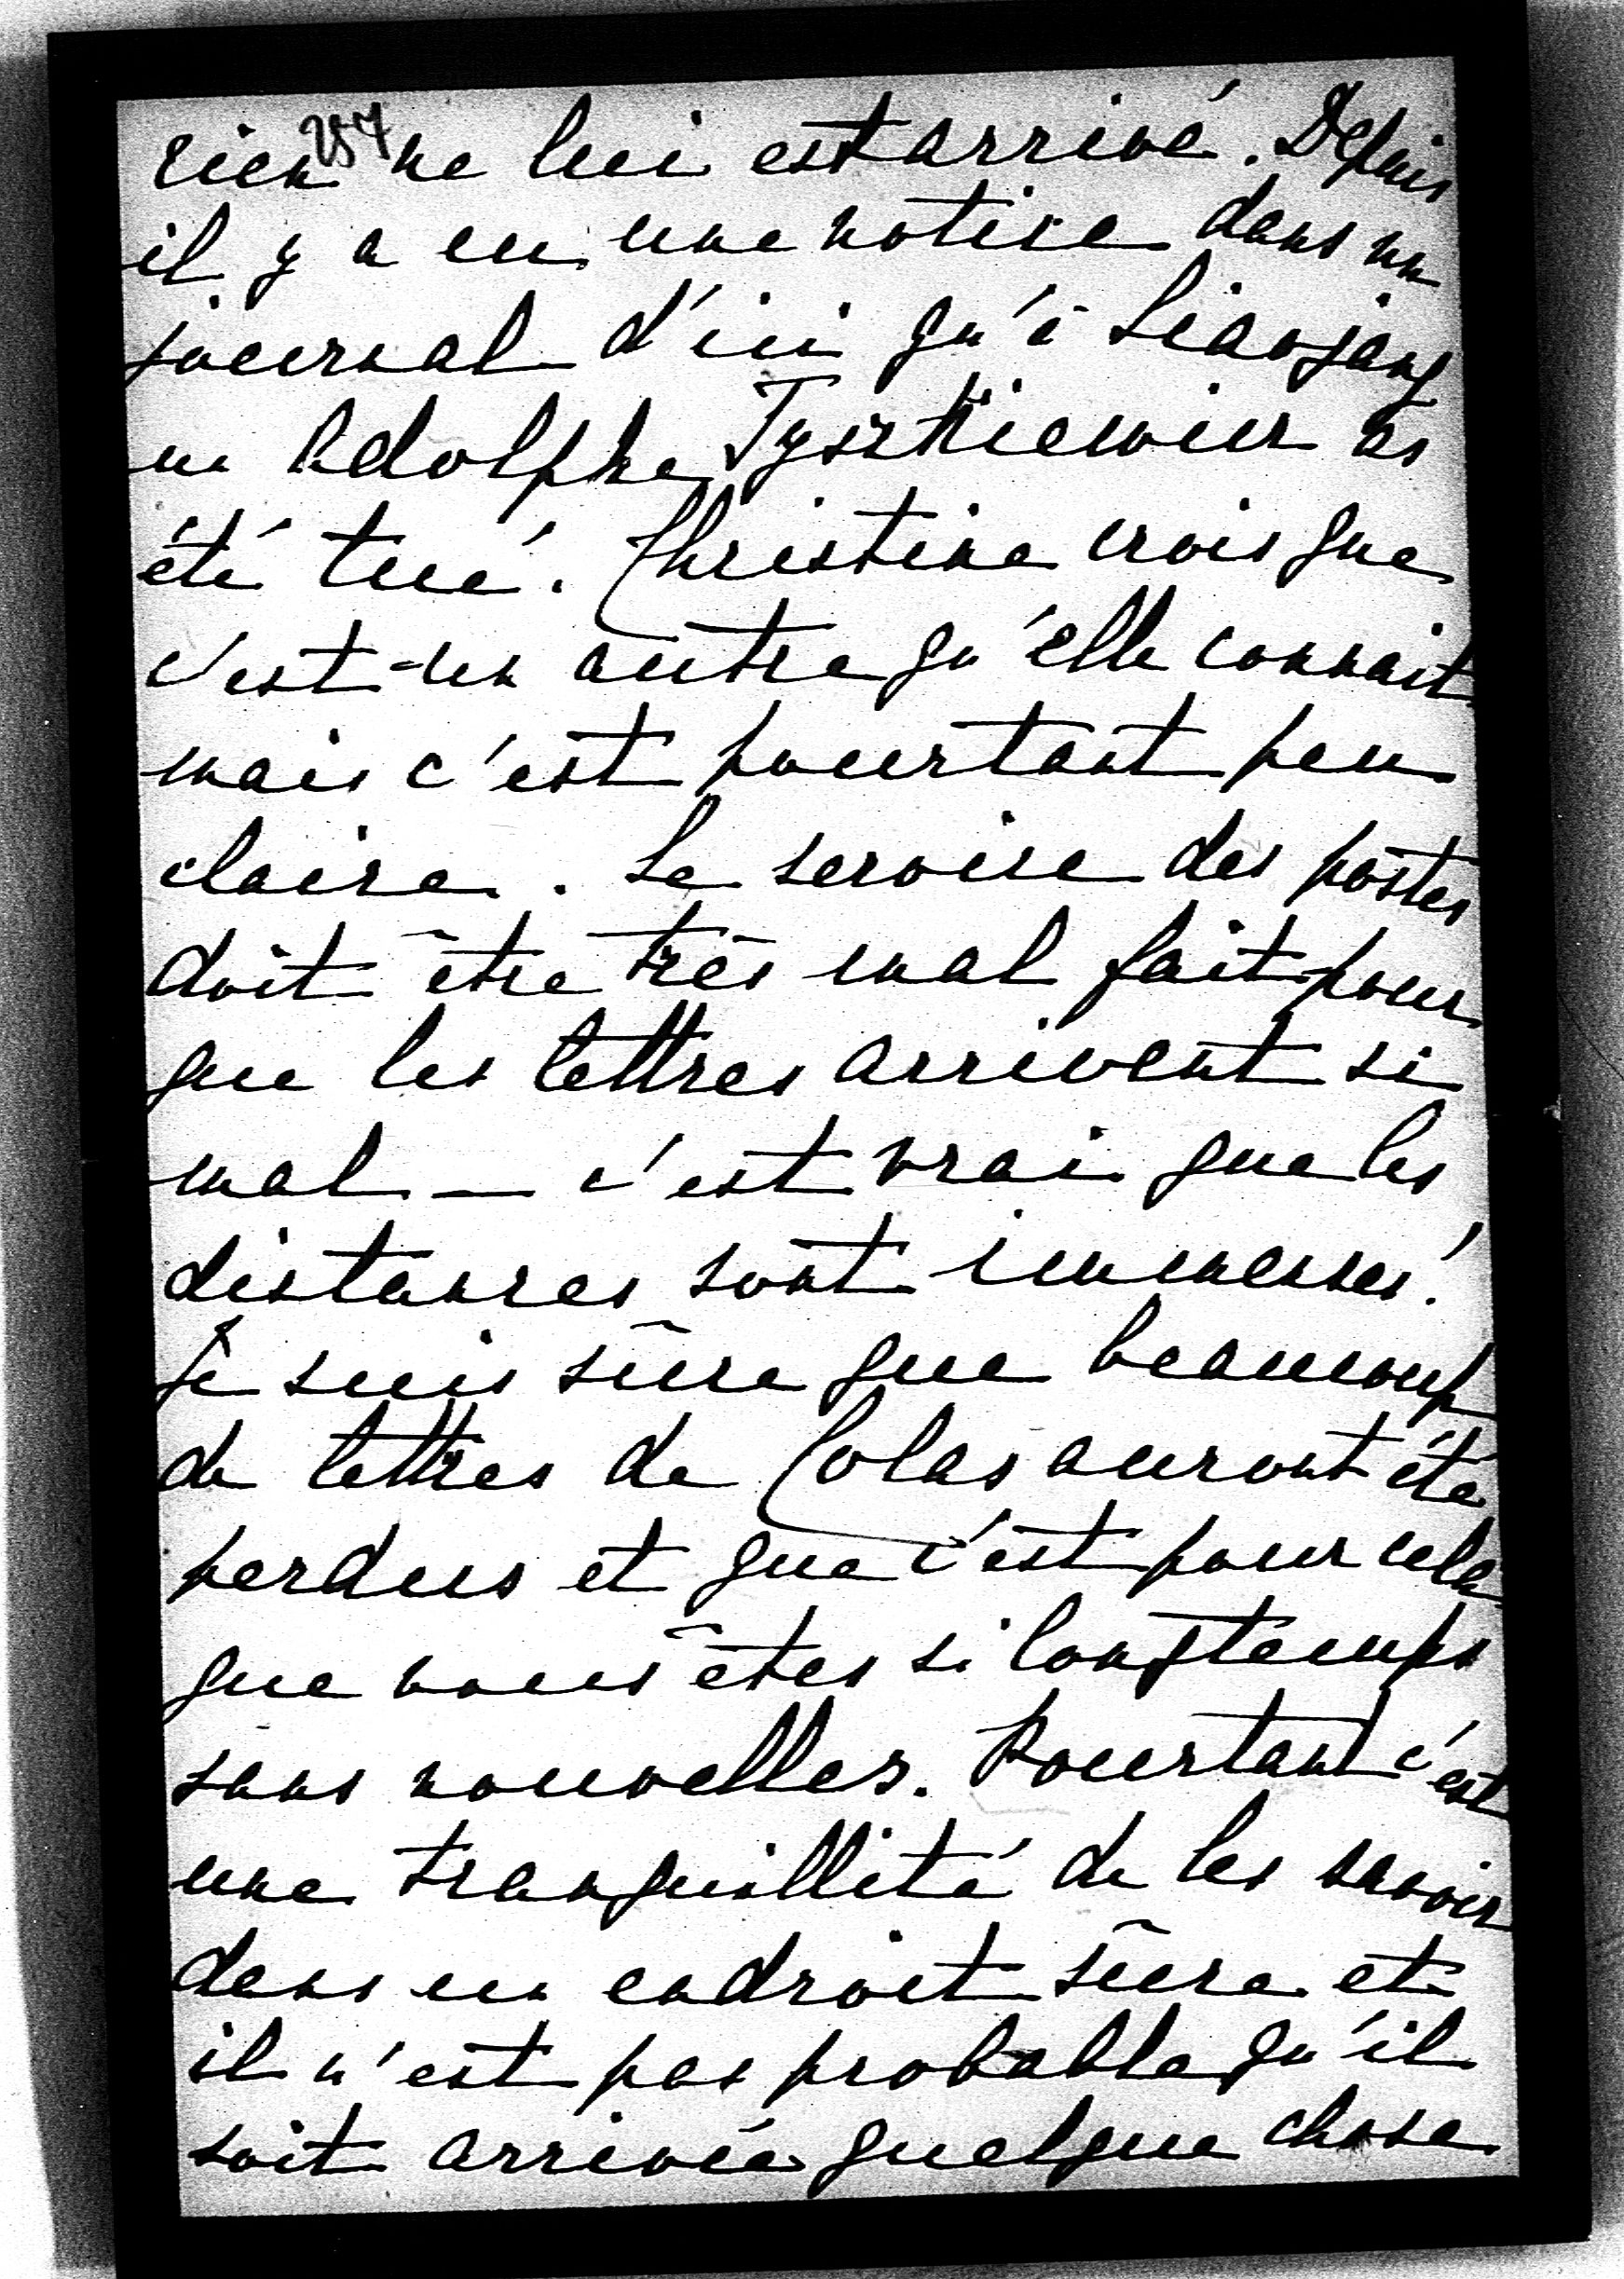 257
rien ne lui est arrivé. Depuis
il y a eu une notice dans un
journal d'ici qu'à Liaojang
un Adolphe Tyszkiewicz as
été tué. Christine crois que
c'est un autre qu'elle connait
mais c'est pourtant peu
claire. Le service des postes
doit être très mal fait pour
que les lettres arrivent si
mal — c'est vrai que les
distances sont immenses!
Je suis sûre que beaucoup
de lettres de Colas auront été
perdus et que c'est pour cela
que vous êtes si longtemps
sans nouvelles. Pourtant c'est
une tranquillité de les savoir
dans un endroit sûre et
il n'est pas probable qu'il
soit arrivée quelque chose